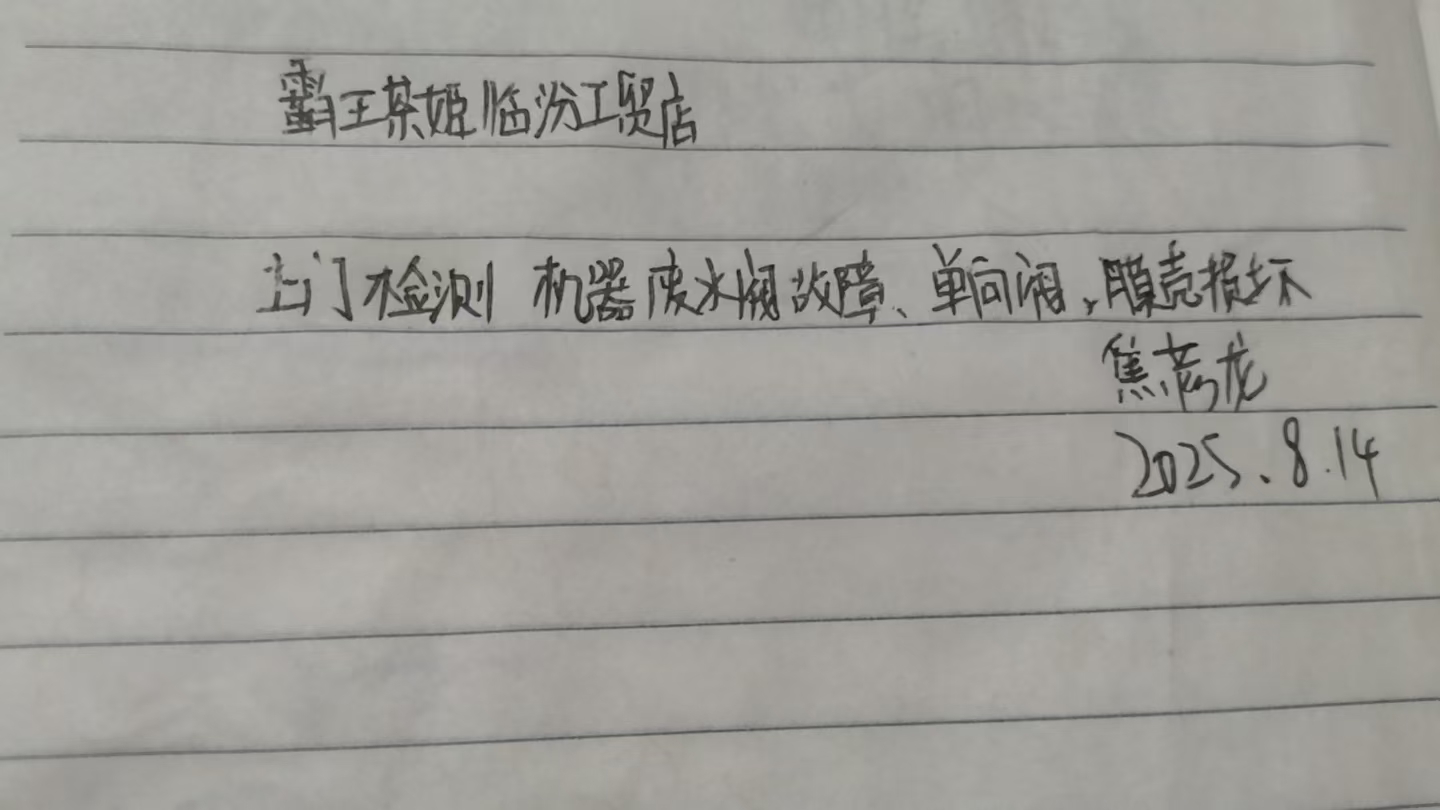 霸王茶姬临汾工贸店
上门检测 机器废水阀故障、单向阀、膜壳损坏
焦彦龙
2025.8.14